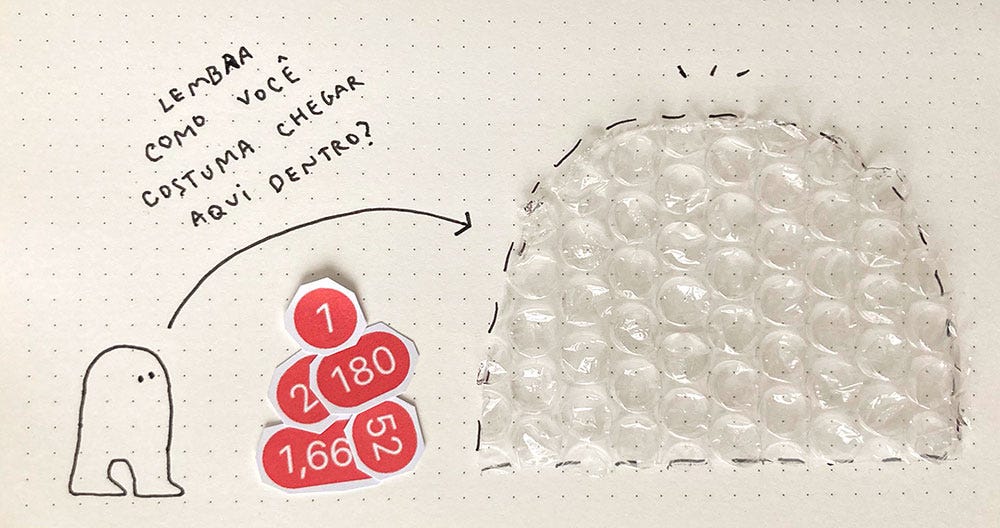 LEMBRA
COMO VOCÊ
COSTUMA CHEGAR
AQUI DENTRO?
1
2
180
1,66
52